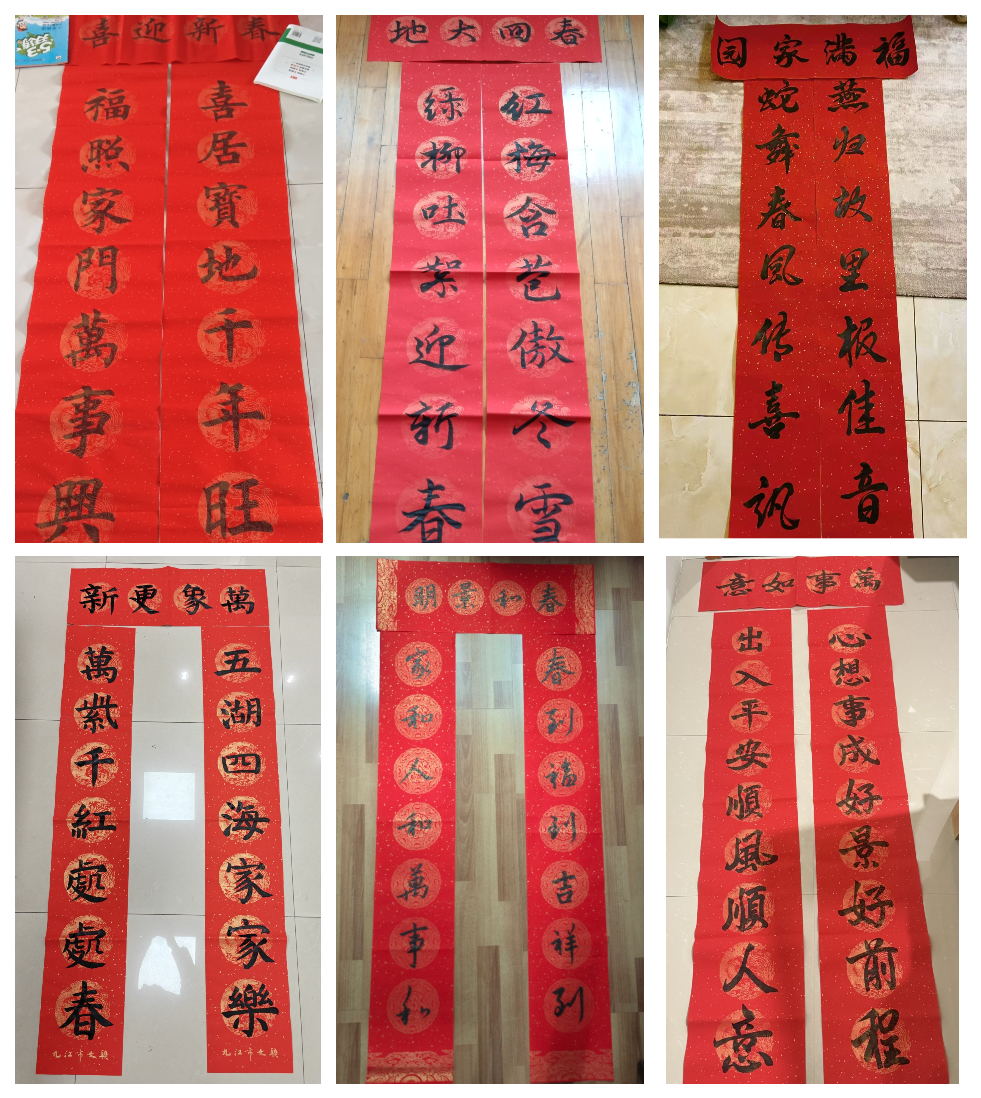 喜迎新春
喜居寶地千年旺
福照家門萬事興
春回大地
红梅含苞傲冬雪
绿柳吐絮迎新春
福满家园
燕归故里板佳音
蛇舞春风传喜讯
萬象更新
五湖四海家家樂
九江市文联
萬紫千紅處處春
九江市文联
春和景明
春到福到吉祥到
家和人和萬事和
萬事如意
心想事成好景好前程
出入平安順風順人意